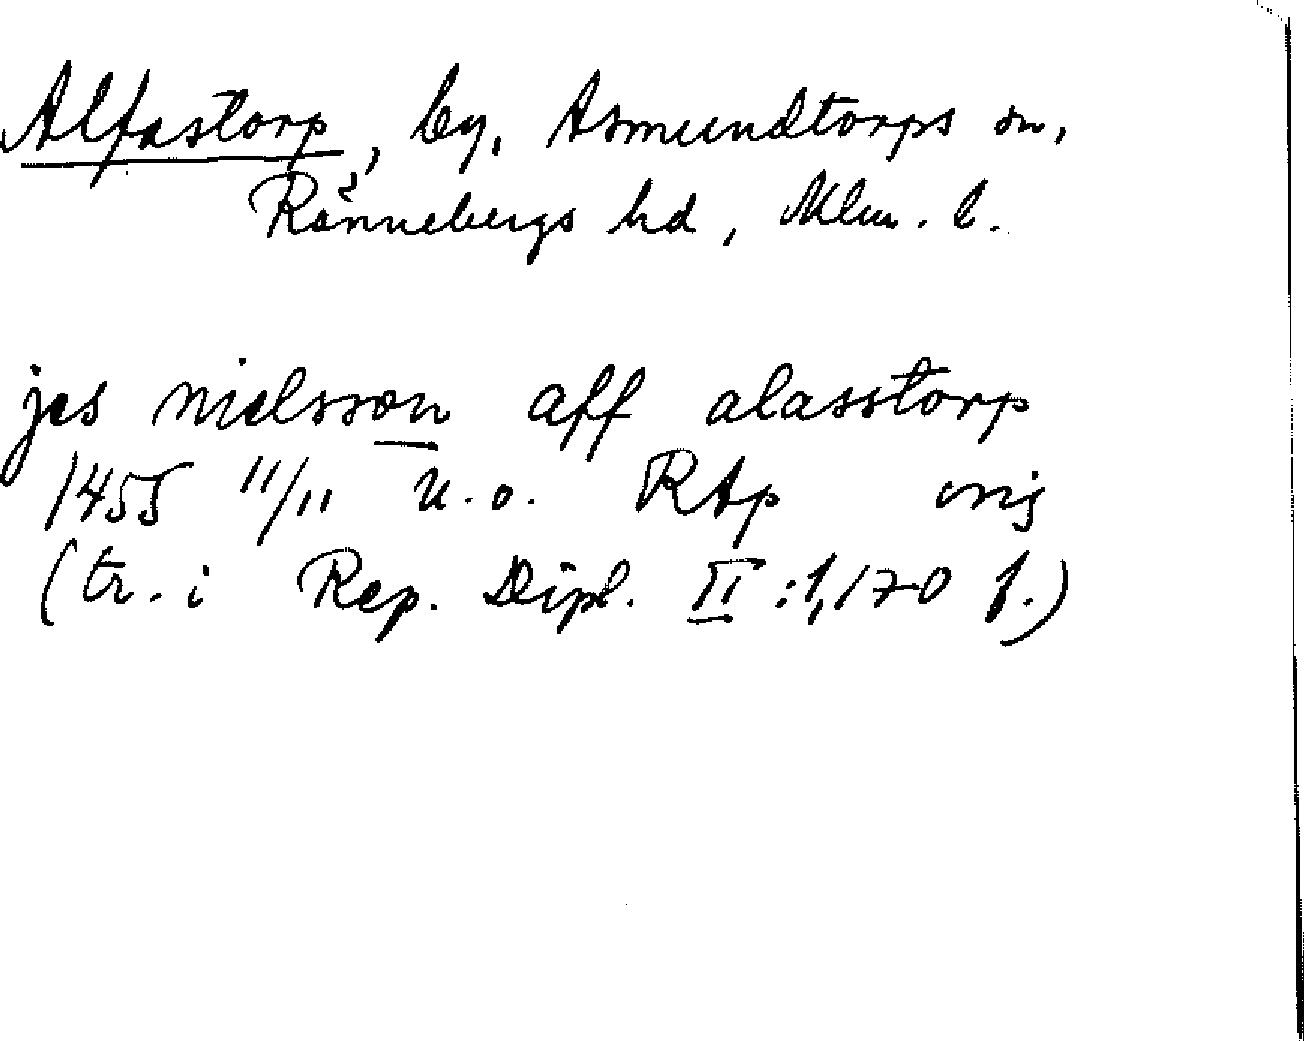 Alfastorp, by, Asmundtorps sn,
Rönnebergs hd, Mlm. l.
jes nielsson aff alasstorp
1455 11/11 u.o. RAp orig
(tr. i Rep. Dipl. II:1,170 f.)